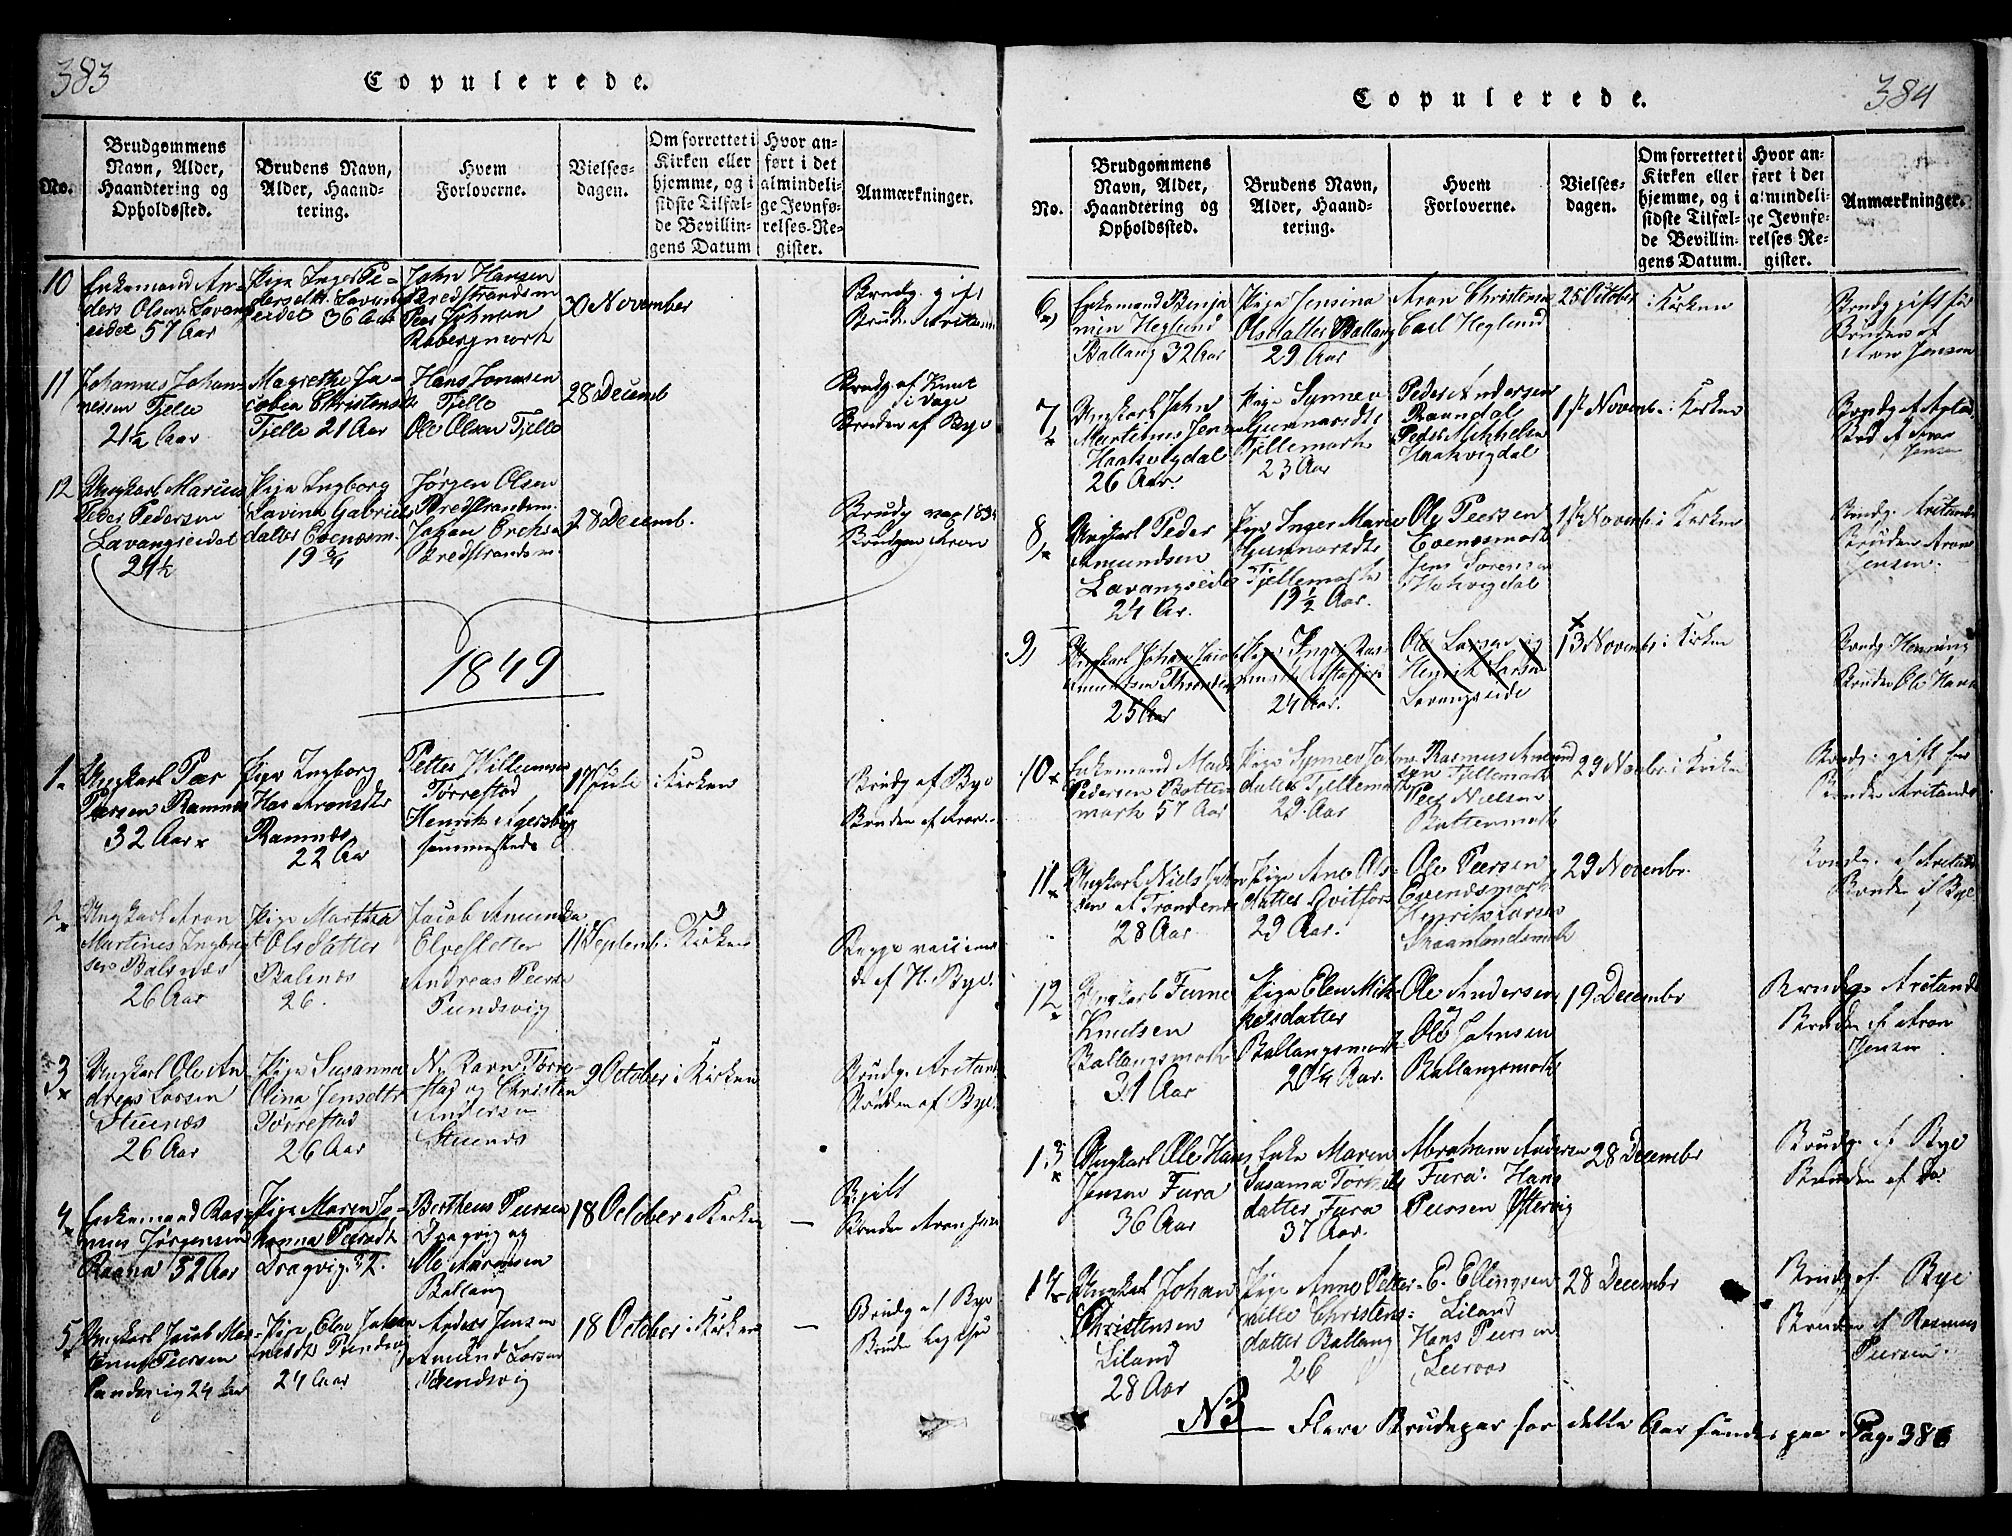 383
Copulerede.
No.
Brudgommens
Navn, Alder,
Haandtering og
Opholdssted.
Brudens Navn,
Alder, Haand-
tering.
Hvem
Forloverne.
Vielses-
dagen.
Om forrettet i
Kirken eller
hjemme, og i
sidste Tilfæl-
de Bevillin-
gens Datum
Hvor an-
ført i det
almindeli-
ge Jevnfø-
relses-Re-
gister.
Anmærkninger.
10
Enkemand An-
ders Olsen Lavang
eidet 57 Aar
Pige Inger Pe-
dersdtr. Lavang
eidet 36 Aar
John Hansen
Bredstrandem
Peer Johnsen
30 November
Brudg. gift
11
Johannes Johan-
nessen Tjelle
21½ Aar
Magrethe Ja-
cobia Christensdtr
Tjelle 21 Aar
Hans Jonasen
Tjelle
Ole Olsen Tjelle
28 Decemb
Brudg. af Knut
Bruden af Bye
12
Ungkarl Marius
Peder Pedersen
Lavangseidet
24½
Pige Ingborg
Lavina Gabriels
datter Evenesm.
19¾
Jørgen Olsen
Bredstrandem.
Johan
Bredstrandem
28 Decemb.
Bruden Aron
1849
1.
Ungkarl Peer
Peersen Ramnæs
32 Aar
Pige Ingborg
Aronsdtr
Ramnæs
22 Aar
Petter Willumsen
Tørrestad
Henrik Agersborg
sammesteds
17 Juli
i Kirken
Brudg af Bye
Bruden af Aron
2
Ungkarl Aron
Martines Ingbrigt
sen Balsnæs
26 Aar
Pige Marthea
Olsdatter
Balsnæs
26.
Jacob Amundsen
Elvesletter
Andreas Peersen
Pundsvig
11 Septemb.
i Kirken
Begge vaccinere-
de af H. Bye.
3
Ungkarl Ole An
dreas Larsen
Stunæs
26 Aar
Pige Susanna
Olina Jensdtr
Tørrestad
26 Aar
N. Ravn Tørre-
stad og Christen
Andersen
Stunæs
9 October
i Kirken
Brudg. Aritand
Bruden af Bye.
4
Enkemand Ras-
mus Jørgensen
Raana 52 Aar
Pige Maren Jo-
hanna Peersdtr
Dragvig. 32.
Bertheus Peersen
Dragvig og
Ole Aarensen
Ballang
18 October
i Kirken
Bruden Aron Jen
5
Ungkarl Jacob Mar-
tinus Peersen
Pundsvig 24 Aar
Pige Else Johan
nesdtr Pundsvig
24 Aar
Anders Jensen
Amund Larsen
18 October
i Kirken
Brudg af Bye
384
Copulerede.
No.
Brudgommens
Navn, Alder,
Haandtering og
Opholdssted.
Brudens Navn,
Alder, Haand-
tering.
Hvem
Forloverne.
Vielses-
dagen.
Om forrettet i
Kirken eller
hjemme, og i
sidste Tilfæl-
de Bevillin-
gens Datum.
Hvor an-
ført i det
almindeli-
ge Jevnfø-
relses-Re-
gister.
Anmærkninger.
6
Enkemand Benja
min Heglund
Ballang 32 Aar
Pige Jensina
Olsdatter Ballang
29 Aar
Aron Christensen
Carl Heglund
25 October
i Kirken
Brudg gift før
Bruden af
Aron Jensen
7
Ungkarl John
Martinus Jensen
Haakvigdal
26 Aar.
Pige Synnev
Gunnarsdtr
Tjellemark
23 Aar
Peder Andersen
Raandal
Peder Mikkelsen
Haakvigdal
1st Novemb.
i Kirken
Brud af Aron
Jensen
8
Ungkarl Peder
Amundsen
Lavangseidet
24 Ar.
Pige Inger Marie
Gunnarsdtr
Tjellemark
19½ Aar.
Ole Peersen
Evenesmark
Jens Sørensen
Haakvigdal
1st Novemb.
i Kirken
Brudg. Aritand
Bruden Aron
Jensen.
9
Ungkarl Johan Jacob
Amundsen
25 Aar
Pige Inger Ras
24 Aar.
Ole Larsen og
Henrik Larsen
Lavangseide
13 Novemb.
i Kirken
Brudg. Henning
Bruden Ole Han
10
Enkemand Mads
Pedersen Botten
mark 57 Aar
Pige Synnev Johns
datter Tjellemark
29. Aar
Rasmus Amund
sen Tjellemark
Peer Nielsen
Bottenmark
29 Novbr.
i Kirken
Brudg. gift før
Bruden Aritand
11
Ungkarl Niels John
sen af Trondenes
28 Aar
Pige Ane Ols-
datter Qvitfors
29 Aar.
Ole Peersen
Evenesmark
Henrik Larsen
Skaanlandsmark
29 Novembr.
Brudg. af Aritand
Bruden af Bye
12
Ungkarl Furne
Knutsen
Ballangsmark
31 Aar
Pige Elen Mik-
kelsdatter
Ballangsmark
20¼ Aar.
Ole Andersen
og
Ole Johnsen
Ballangsmark
19. Decembr
Brudg. Aritand
Bruden af Aron
Jensen
13
Ungkarl Ole Hans
Jensen Fura
36 Aar
Enke Maren
Susanna Torkils
datter Fura
37 Aar.
Abraham Andersen
Fura. Hans
Peersen
28 Decembr
Brudg. af Bye
Bruden af Do
14
Ungkarl Johan
Christensen
Liland
28 Aar
Pige Anne Petter-
nille Christens-
datter Ballang
26
E. Ellingsen
Liland
Hans Peersen
Leeraas
28 Decembr
Brudg af. Bye
Bruden af Rasmus
Peersen.
NB Flere Brudepar for dette Aar findes paa Pag. 386